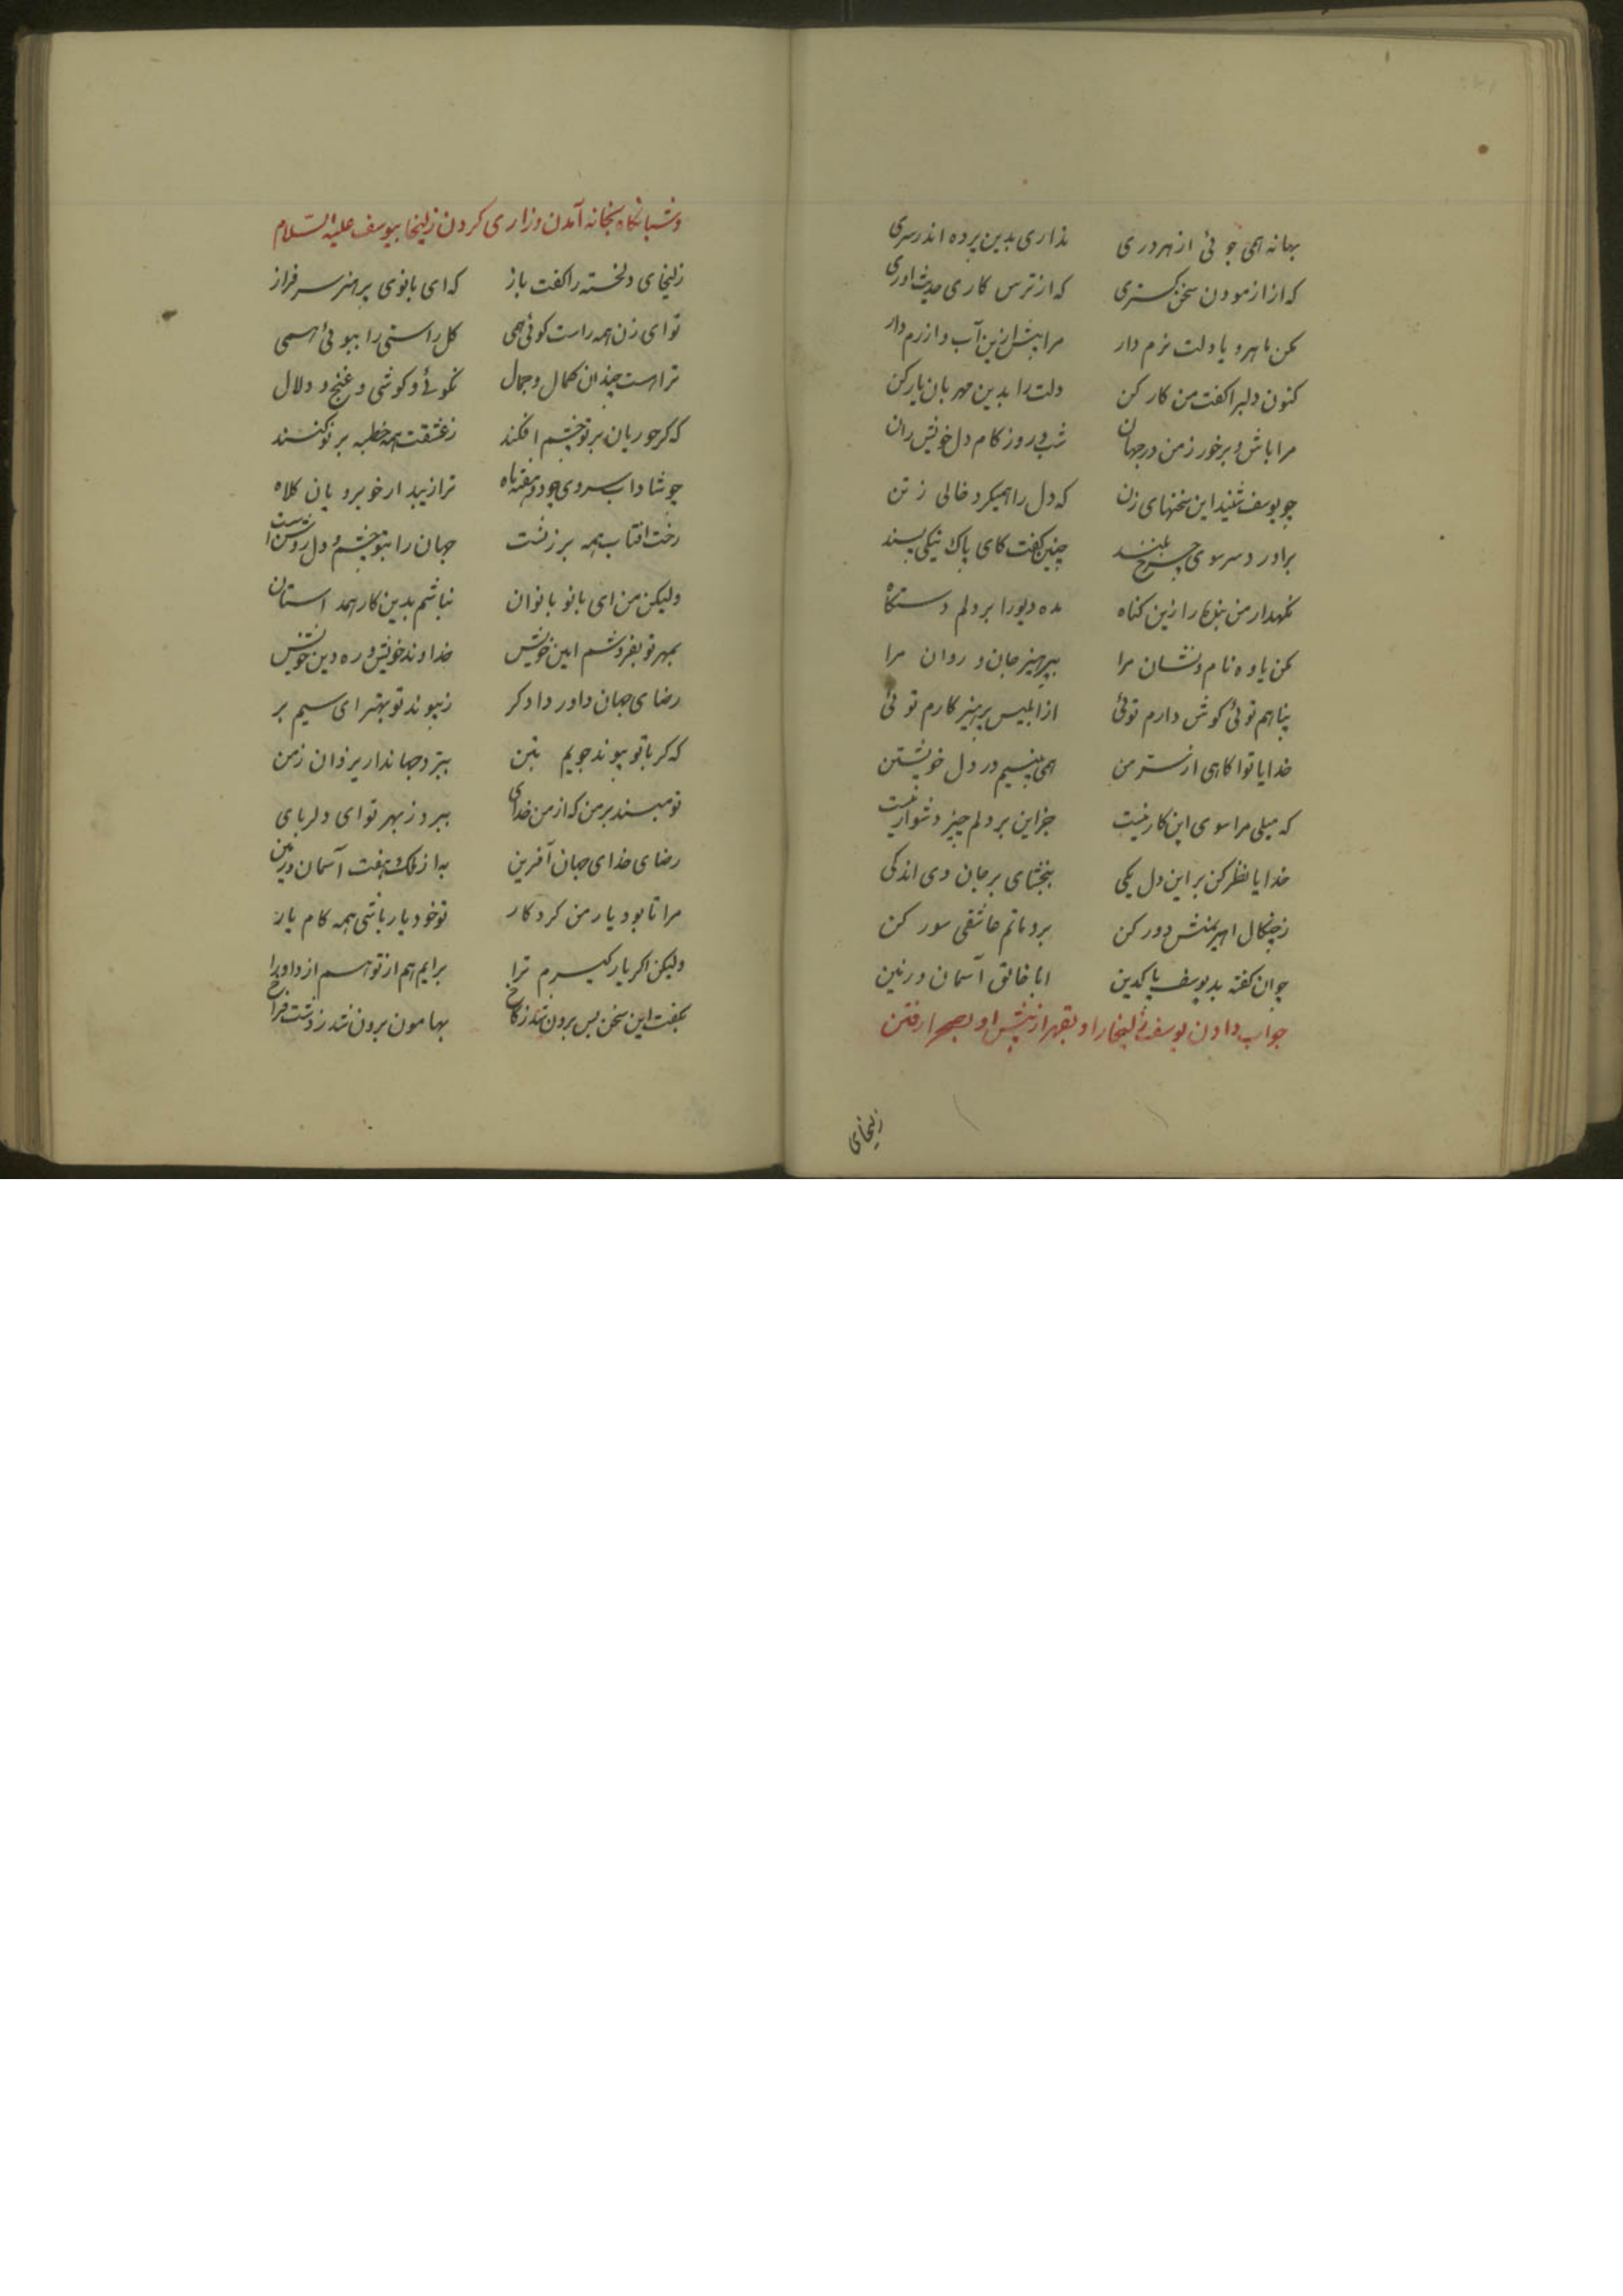 بهانه همی جوئی از هر دری نداری بدین پرده اندر سری
که از ازمودن سخن گستری که از ترس کاری حدیث اوری
مکن ماهرو یا دلت نرم دار مرا پیش ازین آب و ازرم دار
کنون دلبرا گفت من کار کن دلت را بدین مهربان یار کن
مرا باش و برخور ز من در جهان شب و روز کام دل خویش ران
چو یوسف شنید این سخنهای زن که دل را همیکرد خالی ز تن
براورد سر سوی چرخ بلند چنین گفت کای پاک نیکی پسند
نگهدار من بنده را زین گناه مده دیو را بر دلم دستگاه
مکن یاوه نام و نشان مرا بپرهیز جان و روان مرا
پناهم توئی گوش دارم توئی از ابلیس پرهیزگارم توئی
خدایا تو اگاهی از سر من همی بینیم در دل خویشتن
که میلی مرا سوی این کار نیست جز این بر دلم چیز دشوار نیست
خدایا نظر کن بر این دل یکی ببخشای بر جان وی اندکی
ز چنگال اهریمنش دور کن برو ماتم عاشقی سور کن
چو ان گفته بد یوسف پاکدین ایا خالق آسمان و زمین
جواب دادن یوسف زلیخا را و بقهر از پیش او بصحرا رفتن
زلیخای
و شبانگاه بخانه آمدن و زاری کردن زلیخا بیوسف علیه السلام
زلیخای دلخسته را گفت باز که ای بانوی پر هنر سرفراز
تو ای زن همه راست گوئی همی گل راستی را ببوئی همی
ترا هست چندان کمال و جمال نکوئی و کوشی و غنج و دلال
که گر حوریان بر تو چشم افکند ز عشقت همه خطبه بر تو کنند
چو شاداب سروی چو دو هفته ماه ترا زیبد از خوبرویان کلاه
رخت افتاب همه برزنست جهان را بتو چشم و دل روشن است
ولیکن من ای بانو بانوان نباشم بدین کار همداستان
بمهر تو بفروشم امین خویش خداوند خویش و ره دین خویش
رضای جهان داور دادگر ز پیوند تو بهتر ای سیم بر
که گر با تو پیوند جویم بتن ببرد جهاندار یزدان ز من
تو مپسند بر من که از من خدای ببرد ز بهر تو ای دلربای
رضای خدای جهان آفرین به از ملک هفت آسمان و زمین
مرا تا بود یار من کردگار تو خود یار باشی همه کام یار
ولیکن اگر یار گیرم ترا برایم هم از تو هم از داورا
بگفت این سخن پس برون شد ز کاخ بهامون برون شد ز دشت فراخ